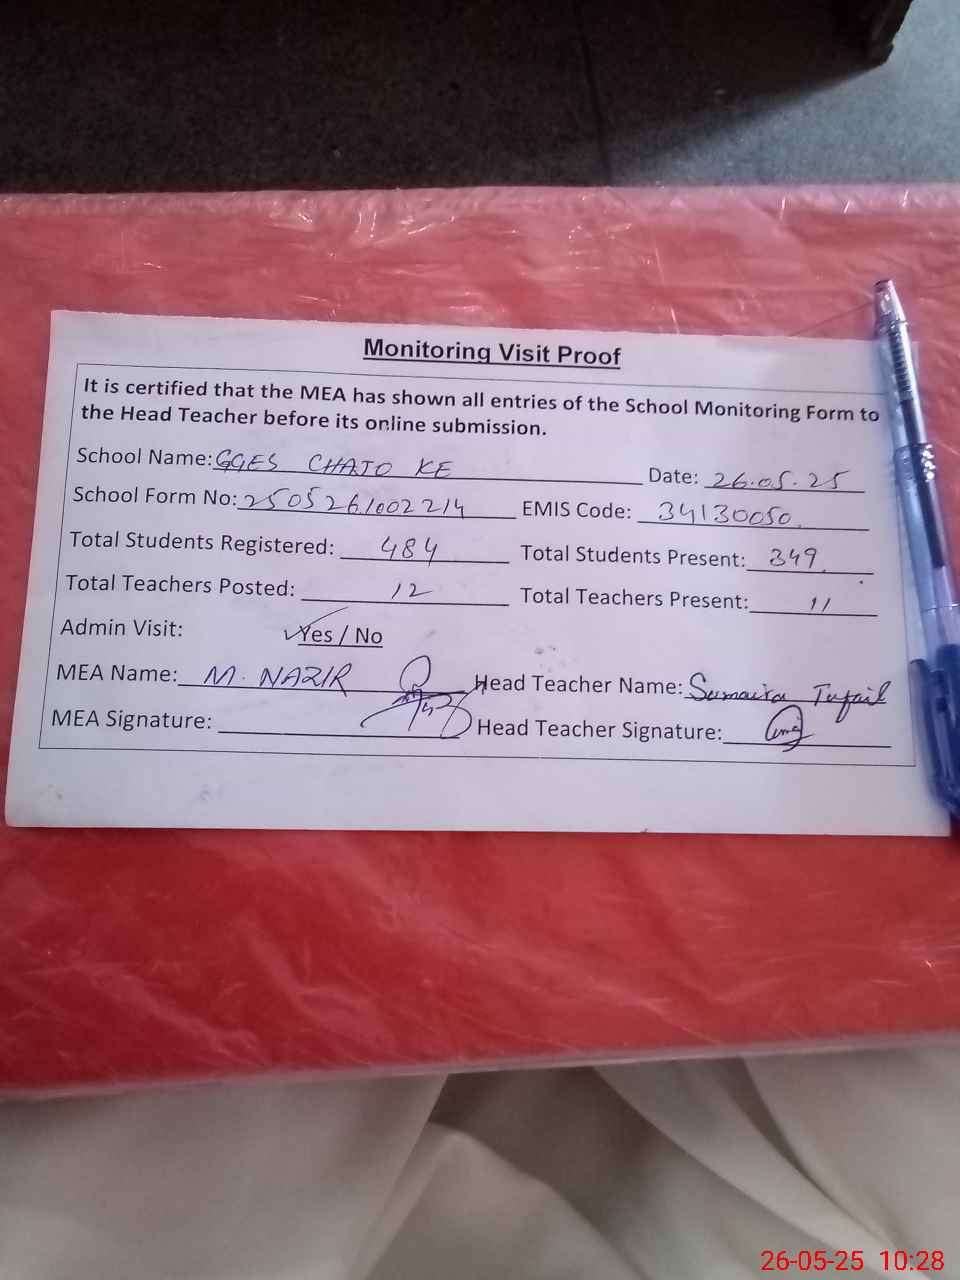 Monitoring Visit Proof
It is certified that the MEA has shown all entries of the School Monitoring Form to
the Head Teacher before its online submission.
School Name: GGES CHATO KE Date: 26.05.25
School Form No: 2505261002214 EMIS Code: 34130050
Total Students Registered: 484 Total Students Present: 349
Total Teachers Posted: 12 Total Teachers Present: 11
Admin Visit: Yes / No
MEA Name: M. NAZIR Head Teacher Name: Sumaira Tufail
MEA Signature: Head Teacher Signature:
26-05-25 10:28